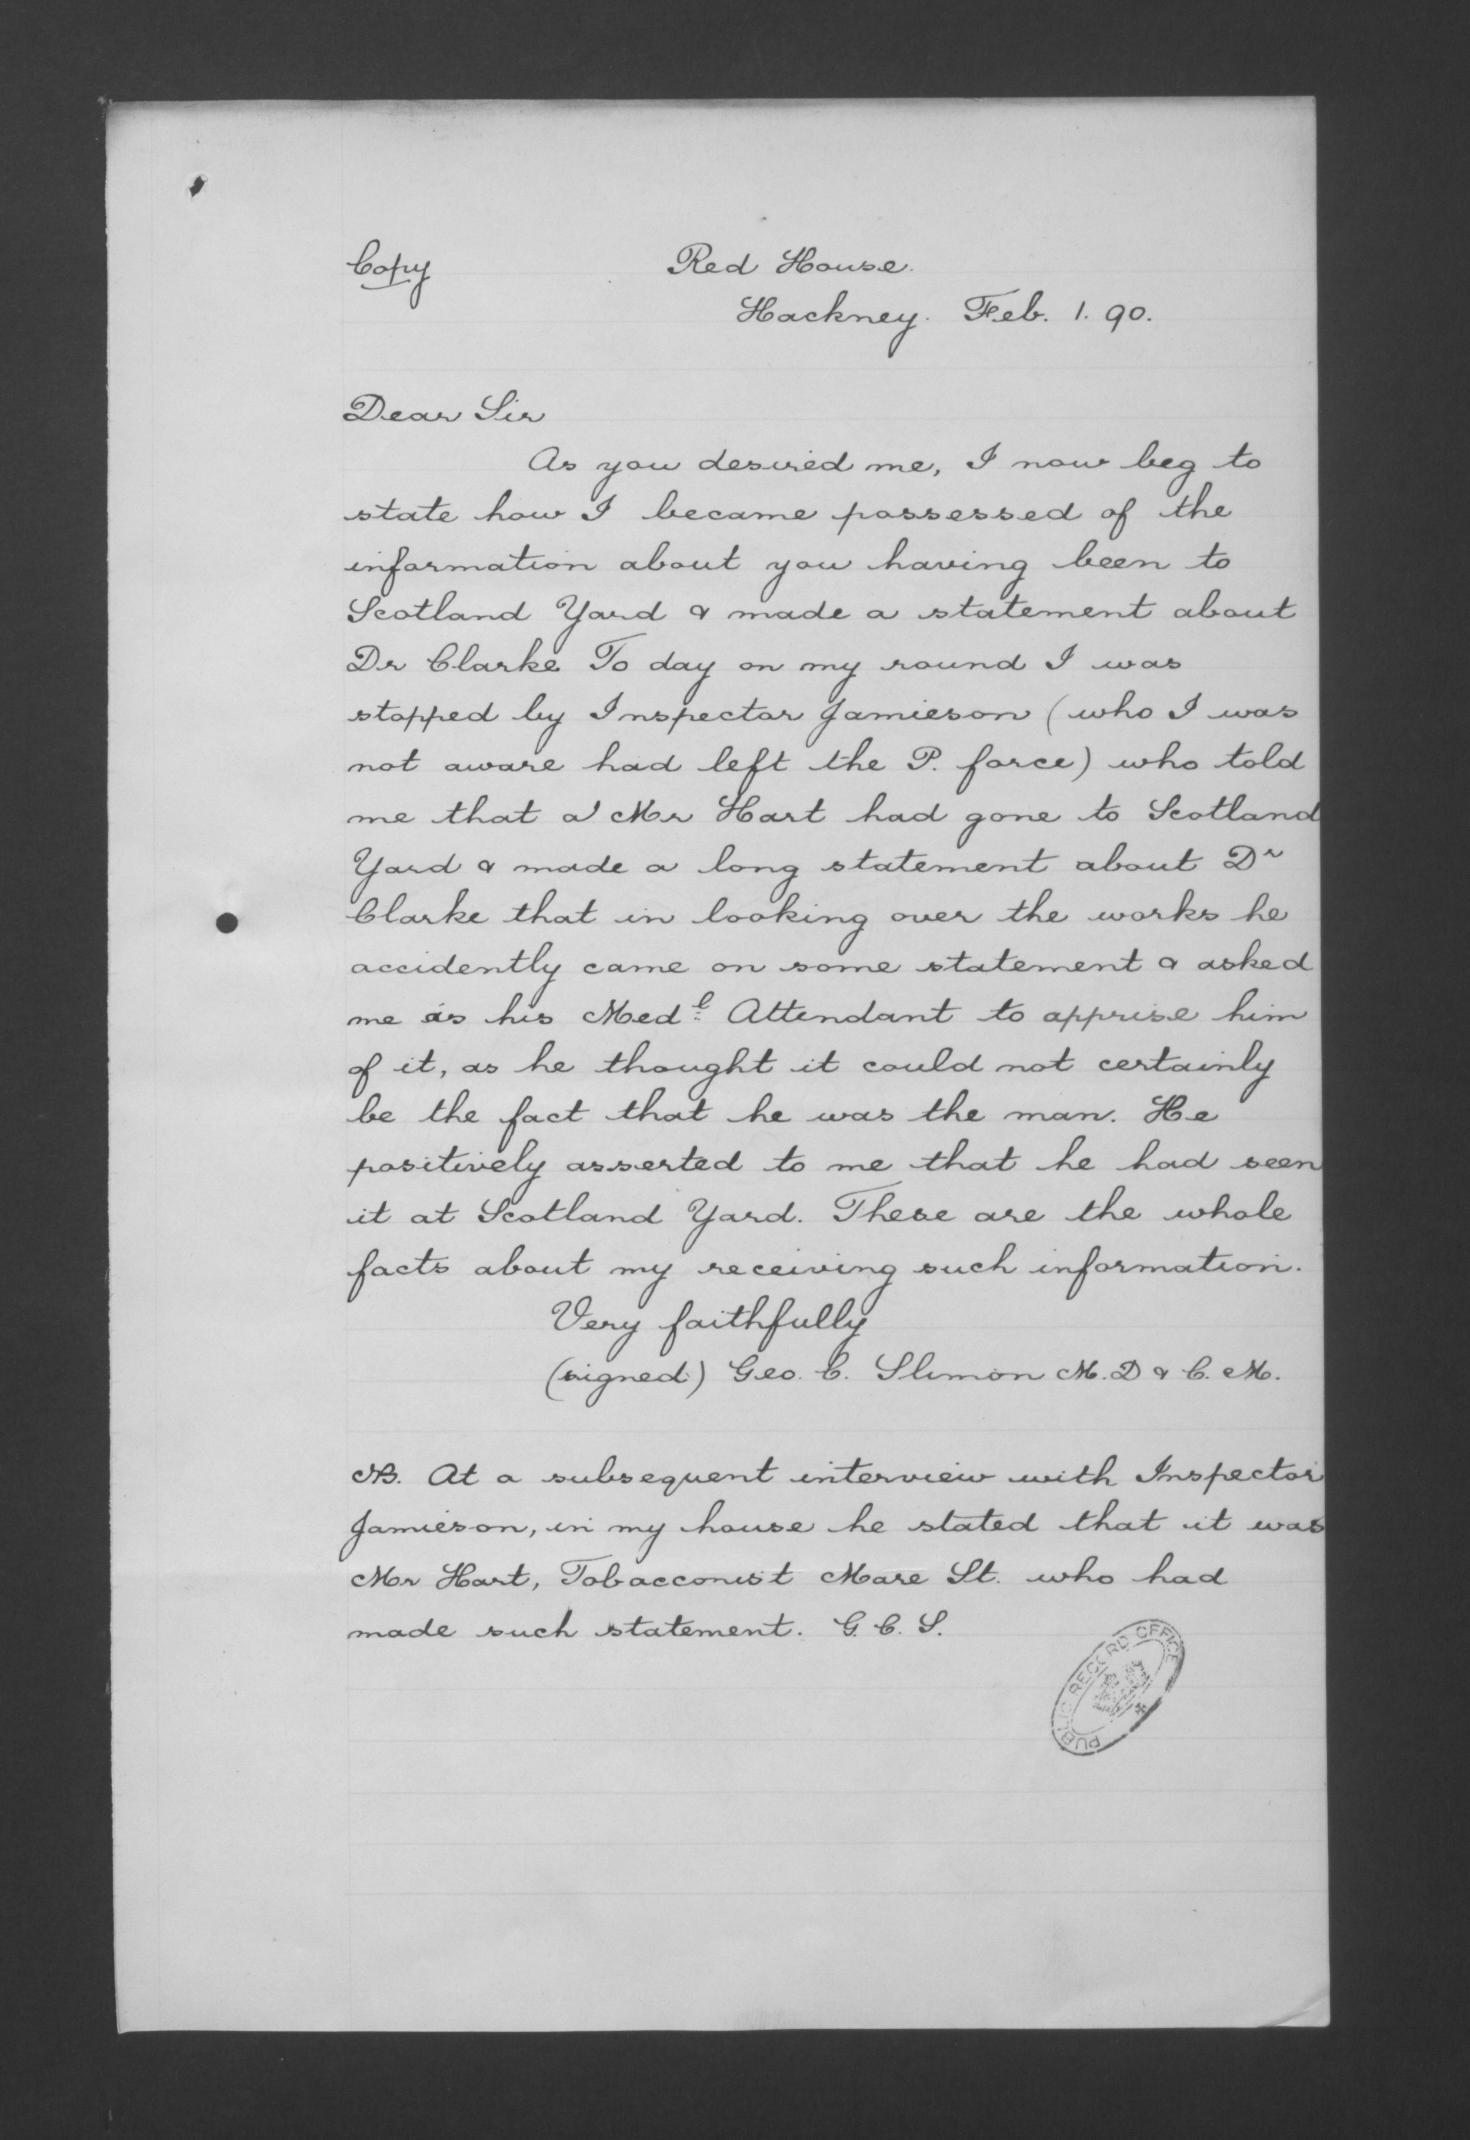 Copy
Red House.
Hackney. Feb. 1. 90.
Dear Sir
As you desired me, I now beg to
state how I became possessed of the
information about you having been to
Scotland Yard & made a statement about
Dr Clarke To day on my round I was
stopped by Inspector Jamieson (who I was
not aware had left the P. force) who told
me that a Mr Hart had gone to Scotland
Yard & made a long statement about Dr
Clarke that in looking over the works he
accidently came on some statement & asked
me as his Medl Attendant to apprise him
of it, as he thought it could not certainly
be the fact that he was the man. He
positively asserted to me that he had seen
it at Scotland Yard. These are the whole
facts about my receiving such information.
Very faithfully
(signed) Geo. C. Slimon M.D & C. M.
NB. At a subsequent interview with Inspector
Jamieson, in my house he stated that it was
Mr Hart, Tobacconist Mare St. who had
made such statement. G. C. S.
PUBLIC RECORD OFFICE